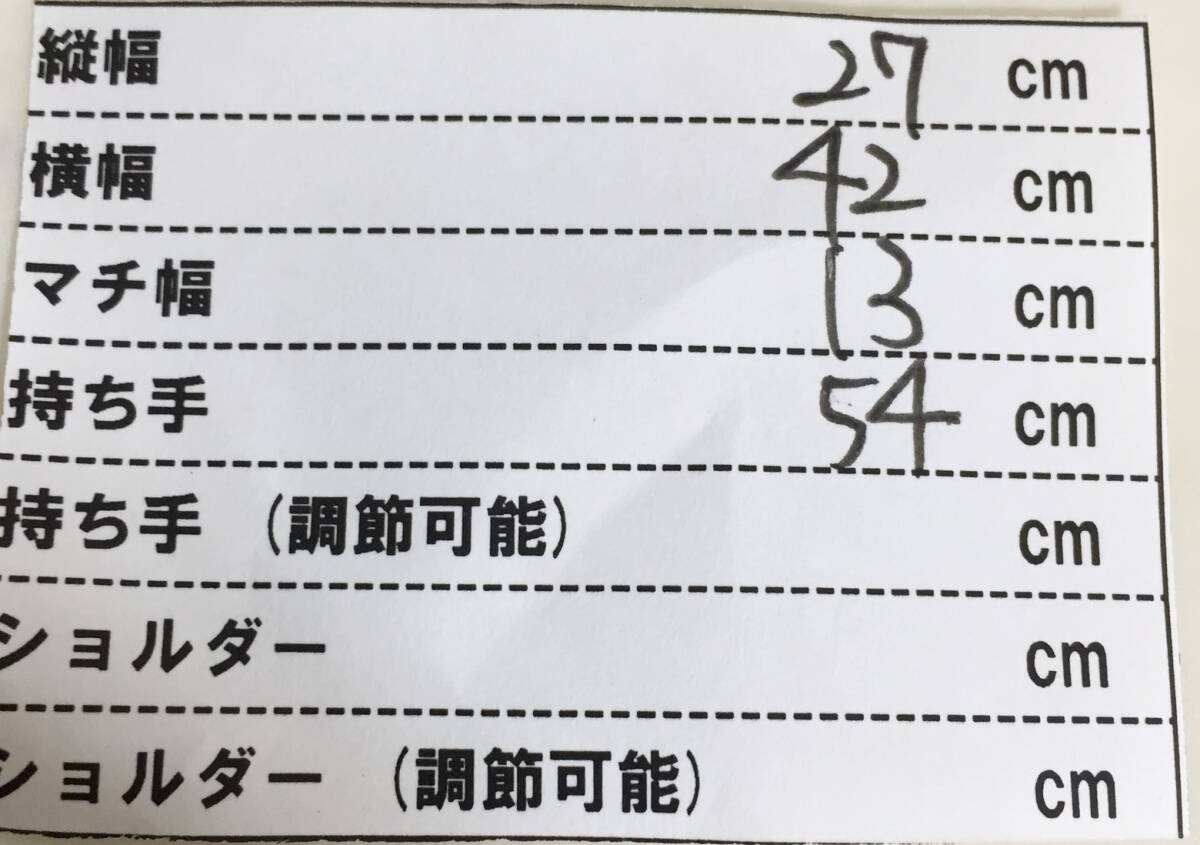 縦幅 27 cm
横幅 42 cm
マチ幅 13 cm
持ち手 54 cm
持ち手 (調節可能) cm
ショルダー cm
ショルダー (調節可能) cm